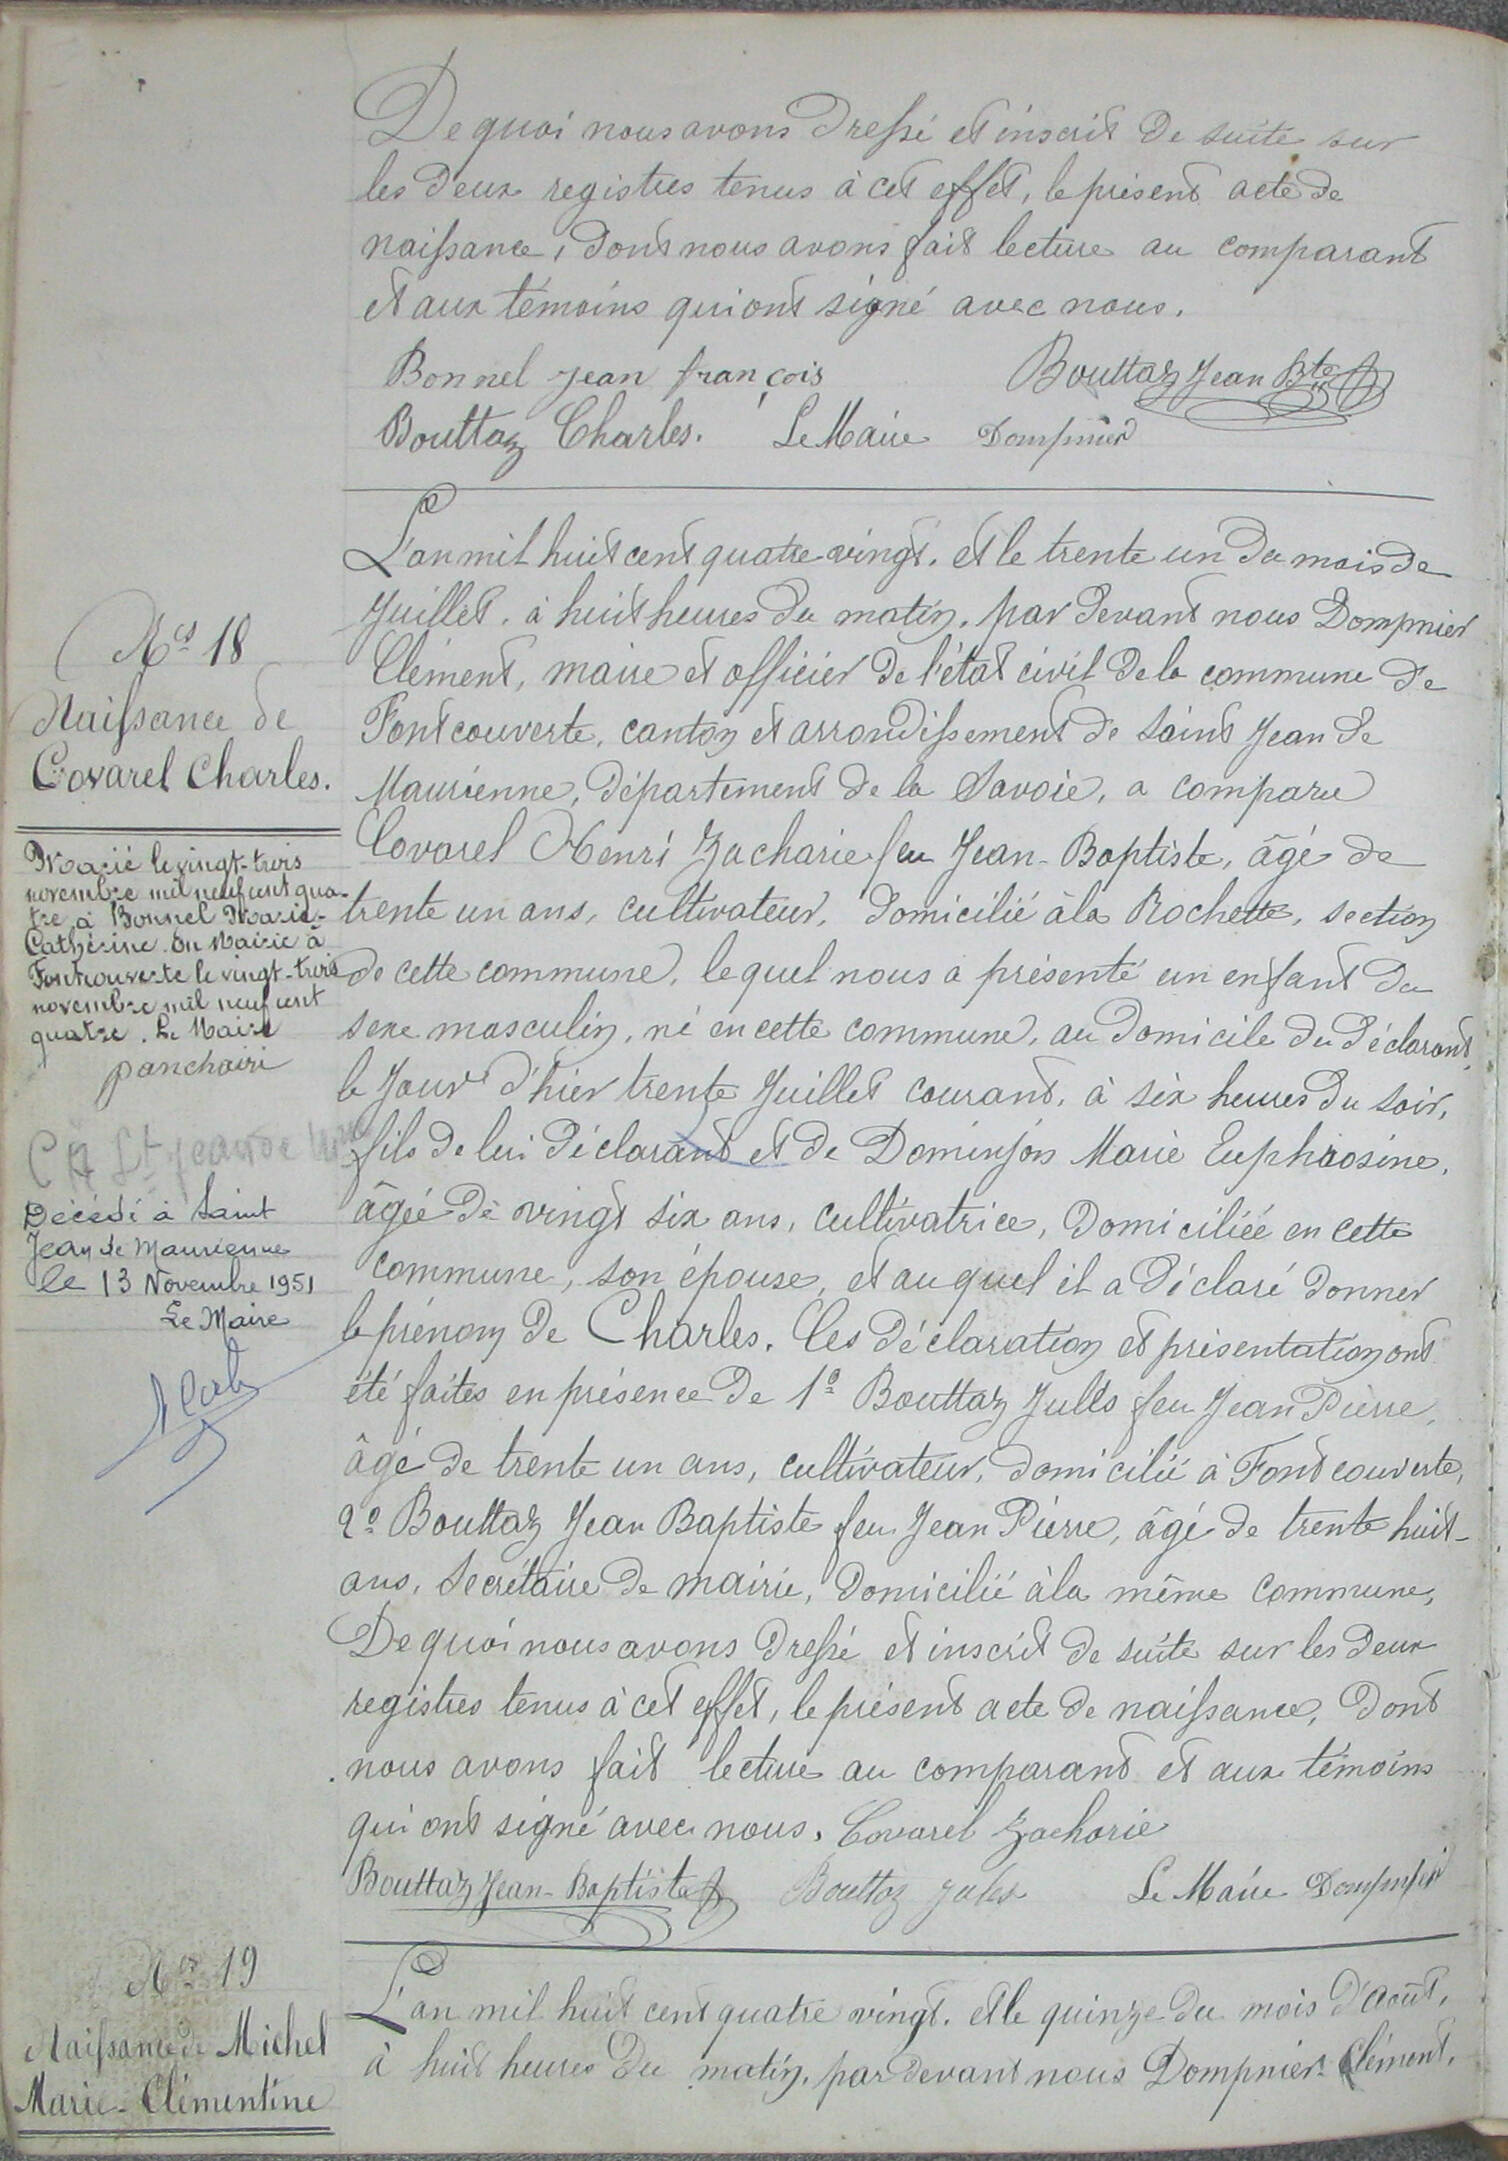 De quoi nous avons dressé et inscrit de suite sur
les deux registres tenus à cet effet, le présent acte de
naissance, dont nous avons fait lecture au comparant
et aux témoins qui ont signé avec nous.
Bonnel Jean françois Bouttaz Jean Bte
Bouttaz Charles. Le Maire Dompnier
L'an mil huit cent quatre vingt. et le trente un du mois de
Juillet, à huit heures du matin, par devant nous Dompnier
Clément, maire et officier de l'état civil de la commune de
Fontcouverte, canton et arrondissement de Saint Jean de
Maurienne, département de la Savoie, a comparu
Covarel Henri Zacharie feu Jean-Baptiste, âgé de
trente un ans, cultivateur, domicilié à la Rochette, section
de cette commune, lequel nous a présenté un enfant du
sexe masculin, né en cette commune, au domicile du déclarant,
le jour d'hier trente Juillet courant, à six heures du soir,
fils de lui déclarant et de Dominjon Marie Euphrosine,
âgée de vingt six ans, cultivatrice, domiciliée en cette
commune, son épouse, et auquel il a déclaré donner
le prénom de Charles. Ces déclaration et présentation ont
été faites en présence de 1º Bouttaz Jules feu Jean Pierre,
âgé de trente un ans, cultivateur, domicilié à Fontcouverte,
2º Bouttaz Jean Baptiste feu Jean Pierre, âgé de trente huit-
ans, Secrétaire de mairie, domicilié à la même commune,
De quoi nous avons dressé et inscrit de suite sur les deux
registres tenus à cet effet, le présent acte de naissance, dont
nous avons fait lecture au comparant et aux témoins
qui ont signé avec nous. Covarel Zacharie
Bouttaz Jean-Baptiste Bouttaz Jules Le Maire Dompnier
L'an mil huit cent quatre vingt. et le quinze du mois d'août,
à huit heures du matin, par devant nous Dompnier Clément,
Nos 18
Naissance de
Covarel Charles.
Marié le vingt-trois
novembre mil neuf cent qua-
tre à Bonnel Marie-
Cathérine. En Mairie à
Fontcouverte le vingt-trois
novembre mil neuf cent
quatre. Le Maire
C A St Jean de
Décédé à Saint
Jean de Maurienne
le 13 Novembre 1951
Le Maire
Nos 19
Naissance de Michel
Marie-Clémentine